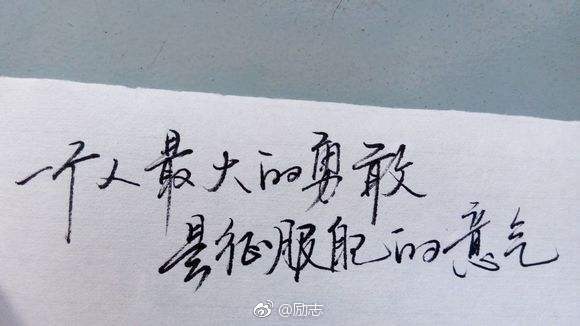 一个人最大的勇敢
是征服自己的意气
@励志